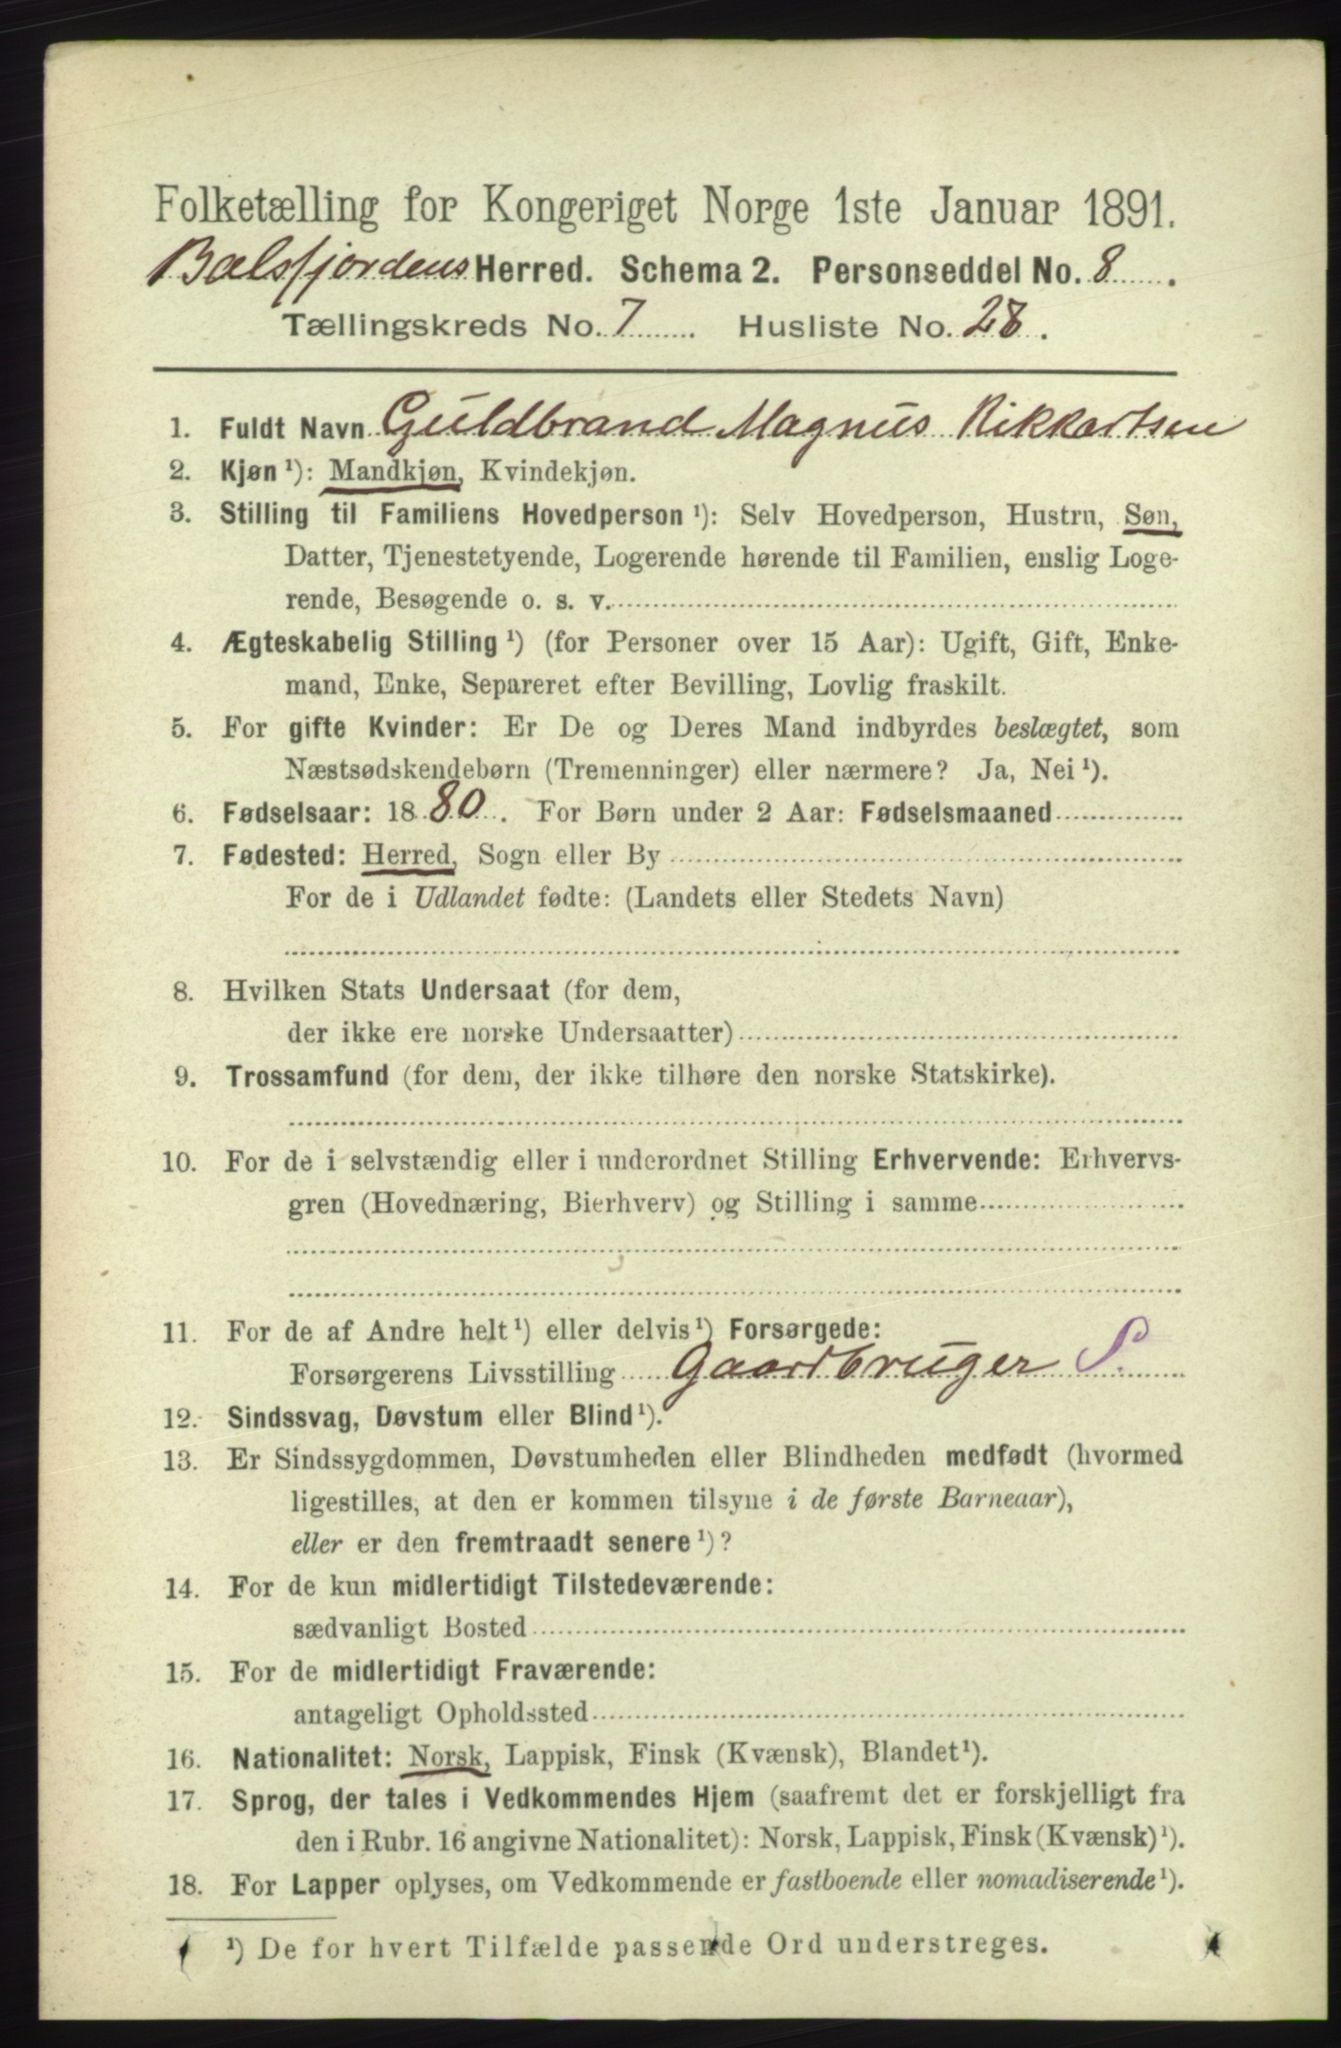 Folketælling for Kongeriget Norge 1ste Januar 1891.
Balsfjordens Herred. Schema 2. Personseddel No. 8.
Tællingskreds No. 7 Husliste No. 28.
1. Fuldt Navn Guldbrand Magnus Rikkartsen
2. Kjøn¹): Mandkjøn, Kvindekjøn.
3. Stilling til Familiens Hovedperson¹): Selv Hovedperson, Hustru, Søn,
Datter, Tjenestetyende, Logerende hørende til Familien, enslig Loge-
rende, Besøgende o. s. v.
4. Ægteskabelig Stilling¹) (for Personer over 15 Aar): Ugift, Gift, Enke-
mand, Enke, Separeret efter Bevilling, Lovlig fraskilt.
5. For gifte Kvinder: Er De og Deres Mand indbyrdes beslægtet, som
Næstsødskendebørn (Tremenninger) eller nærmere? Ja, Nei¹).
6. Fødselsaar: 1880. For Børn under 2 Aar: Fødselsmaaned
7. Fødested: Herred, Sogn eller By
For de i Udlandet fødte: (Landets eller Stedets Navn)
8. Hvilken Stats Undersaat (for dem,
der ikke ere norske Undersaatter)
9. Trossamfund (for dem, der ikke tilhøre den norske Statskirke).
10. For de i selvstændig eller i underordnet Stilling Erhvervende: Erhvervs-
gren (Hovednæring, Bierhverv) og Stilling i samme
11. For de af Andre helt¹) eller delvis¹) Forsørgede:
Forsørgerens Livsstilling Gaardbruger S.
12. Sindssvag, Døvstum eller Blind¹).
13. Er Sindssygdommen, Døvstumheden eller Blindheden medfødt (hvormed
ligestilles, at den er kommen tilsyne i de første Barneaar),
eller er den fremtraadt senere¹)?
14. For de kun midlertidigt Tilstedeværende:
sædvanligt Bosted
15. For de midlertidigt Fraværende:
antageligt Opholdssted
16. Nationalitet: Norsk, Lappisk, Finsk (Kvænsk), Blandet¹).
17. Sprog, der tales i Vedkommendes Hjem (saafremt det er forskjelligt fra
den i Rubr. 16 angivne Nationalitet): Norsk, Lappisk, Finsk (Kvænsk)¹).
18. For Lapper oplyses, om Vedkommende er fastboende eller nomadiserende¹).
¹) De for hvert Tilfælde passende Ord understreges.